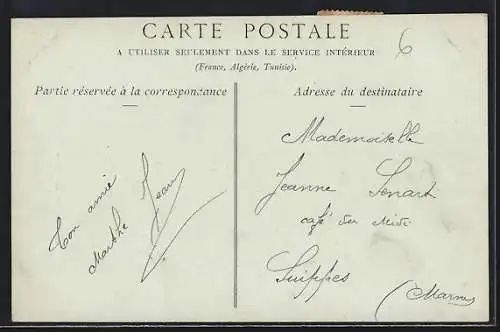 CARTE POSTALE
A UTILISER SEULEMENT DANS LE SERVICE INTÉRIEUR
(France, Algérie, Tunisie).
6
Partie réservée à la correspondance
Ton amie
Marthe Jean
Adresse du destinataire
Mademoiselle
Jeanne Lenart
café du Midi
Suippes
(Marne)